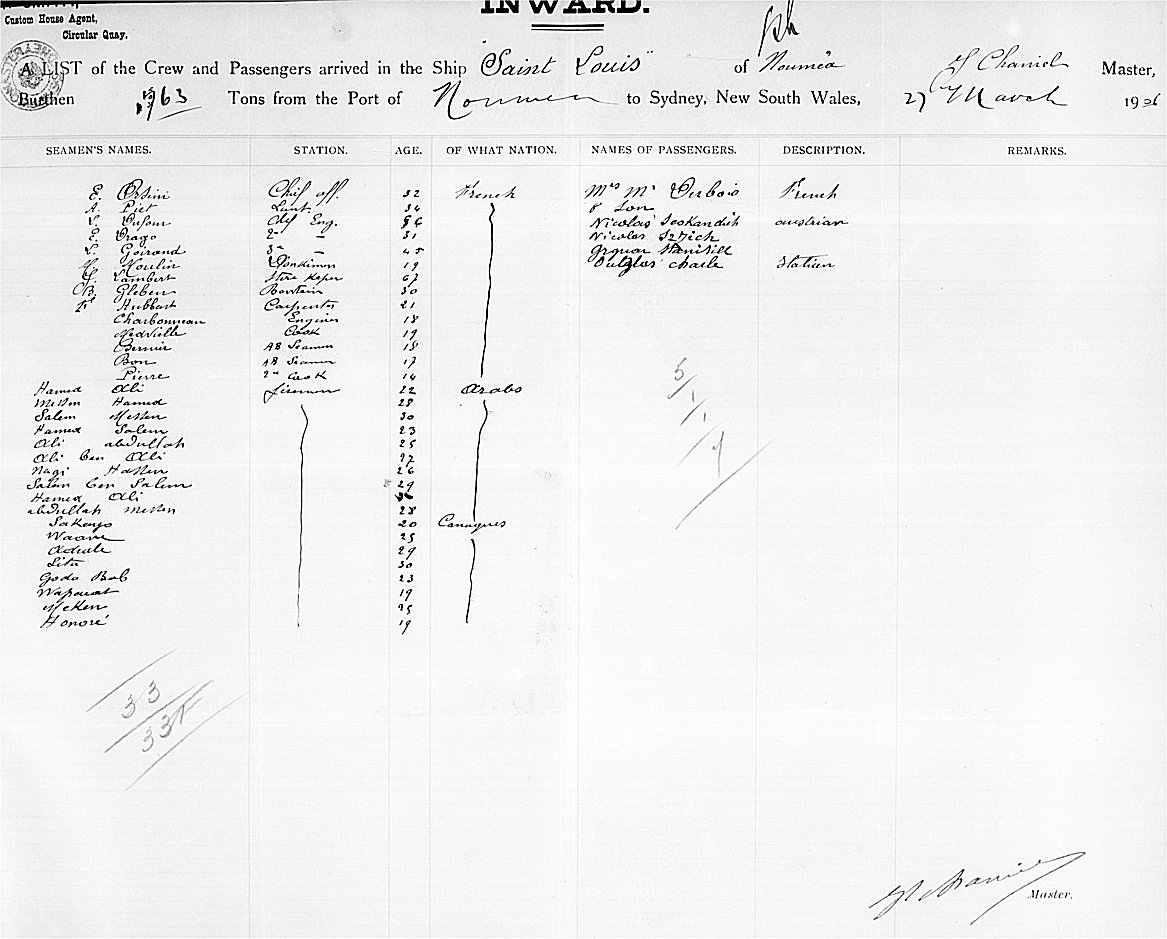 INWARD.
Custom House Agent,
Circular Quay.
A LIST of the Crew and Passengers arrived in the Ship "Saint Louis" of Nouméa Master,
Burthen Tons from the Port of Noumea to Sydney, New South Wales, 27 March 1906
SEAMEN'S NAMES. STATION. AGE. OF WHAT NATION. NAMES OF PASSENGERS. DESCRIPTION. REMARKS.
E. Orsini Chief off. 32 French Mrs Mr Dubois French
A. Piet Lieut 34 & Son
L. Dufour Chf Eng. Nicolas austrian
E. Drago 2nd — 31 Nicolas
L. Goirand 3rd — 45
Moulin Donkiman 19 charle Italian
Lambert Store Keper 67
B. Gleben 30
Hubbart Carpenter 21
Charbonneau Engineer 18
Medville Cook 19
Bernier AB Seamen 18
Bon AB Seamen 17
Pierre 2nd Cook 14
Hamed Ali firemen 22 Arabs
Messen Hamed 28
Salem Messen 30
Hamed Salem 23
Ali abdullah 25
Ali Ben Ali 27
Nagi Hassen 26
Salem Ben Salem 29
Hamed Ali
abdullah Messen 28
Sakayo 20 Canaques
Waane 25
29
Lita 30
Godo Bob 23
19
Meken 25
Honoré 19
5
1
1
7
33
33
Master.